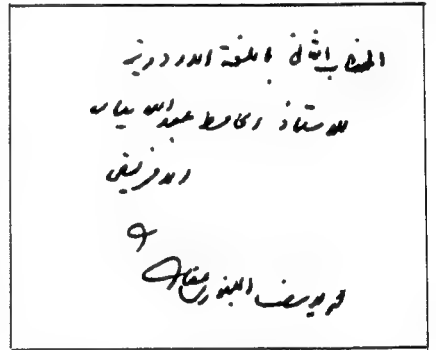 الخطاب الثانى باللغة الاردوية
للاستاذ الحافظ عبدالله
الافريقى
محمد يوسف البنورى عفا